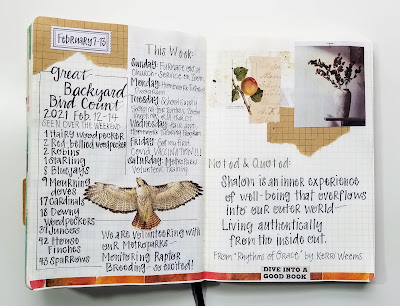 February 7-13
Great
Backyard
Bird Count
2021 Feb. 12-14
SEEN OVER THE WEEKEND
1 Hairy Woodpecker
2 Red-bellied Woodpecker
2 Robins
16 Starling
8 Bluejays
9 Mourning
doves
17 Cardinals
18 Downy
Woodpeckers
31 Juncos
42 House
Finches
43 Sparrows
This Week:
Sunday: Furnace out at
Church - Service on Zoom
Monday: Homeschool
Tuesday: School Supply
Wednesday:
Homeschool
Friday: Got my first
Covid VACCINATION!!!
Saturday: Metroparks
Volunteer Training
We are Volunteering with
our Metroparks -
Monitoring Raptor
Breeding - so excited!
Noted & Quoted:
Shalom is an inner experience
of well-being that overflows
into our outer world -
Living authentically
from the inside out.
From "Rhythms of Grace" by Kerri Weems
DIVE INTO A
GOOD BOOK